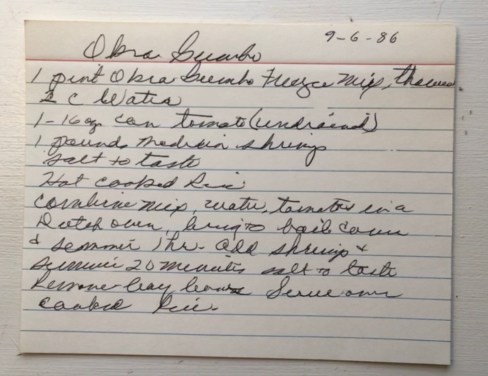 9-6-86
Okra Gumbo
1 pint Okra Gumbo Freeze Mix, thawed
2 c Water
1-16 oz can tomato (undrained)
1 pound medium shrimp
Salt to taste
Hot cooked Rice
Combine mix, water, tomatoes in a
Dutch oven, bring to boil cover
& simmer 1 hr. add shrimp &
simmer 20 minutes salt to taste
Remove bay leaves Serve over
cooked Rice.